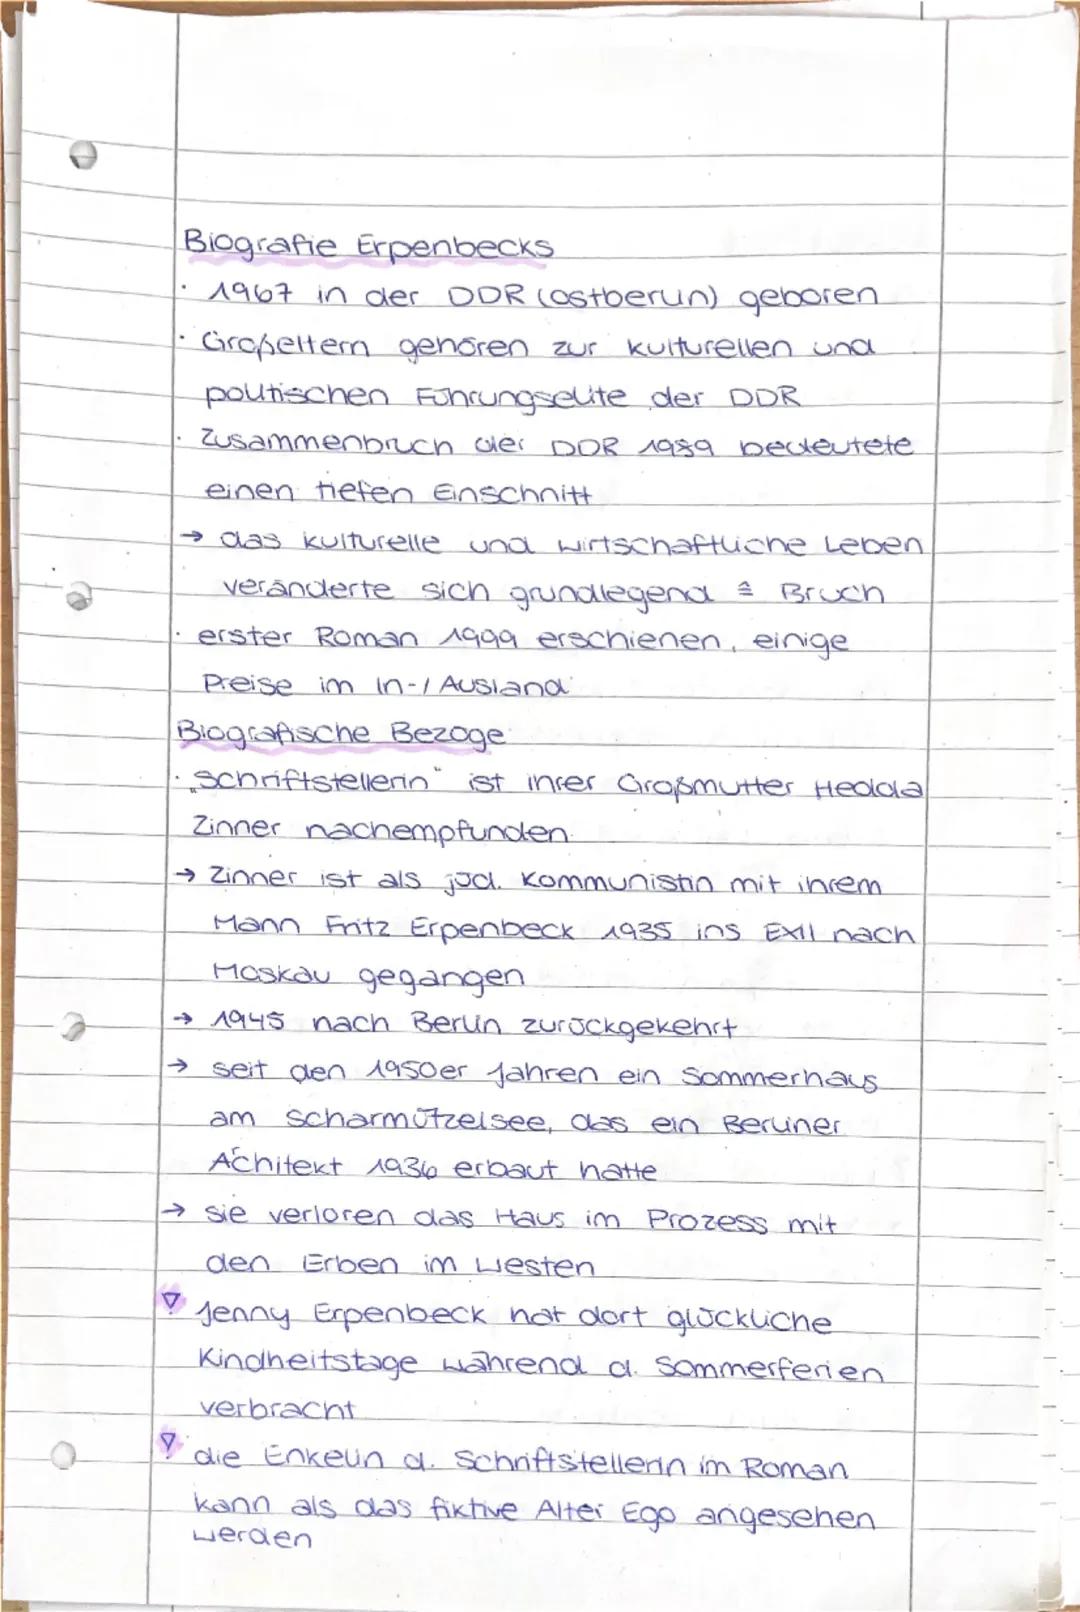 Biografie Erpenbecks
· 1967 in der DDR (Ostberlin) geboren
· Großeltern gehören zur kulturellen und
politischen Führungselite der DDR
· Zusammenbruch der DDR 1989 bedeutete
einen tiefen Einschnitt
→ das kulturelle und wirtschaftliche Leben
veränderte sich grundlegend ≙ Bruch
· erster Roman 1999 erschienen, einige
Preise im In-/Ausland
Biografische Bezüge
· „Schriftstellerin" ist ihrer Großmutter Hedda
Zinner nachempfunden
→ Zinner ist als jüd. Kommunistin mit ihrem
Mann Fritz Erpenbeck 1935 ins Exil nach
Moskau gegangen
→ 1945 nach Berlin zurückgekehrt
→ seit den 1950er Jahren ein Sommerhaus
am Scharmützelsee, das ein Berliner
Achitekt 1936 erbaut hatte
→ sie verloren das Haus im Prozess mit
den Erben im Westen
▽ Jenny Erpenbeck hat dort glückliche
Kindheitstage während d. Sommerferien
verbracht
▽ die Enkelin d. Schriftstellerin im Roman
kann als das fiktive Alter Ego angesehen
werden